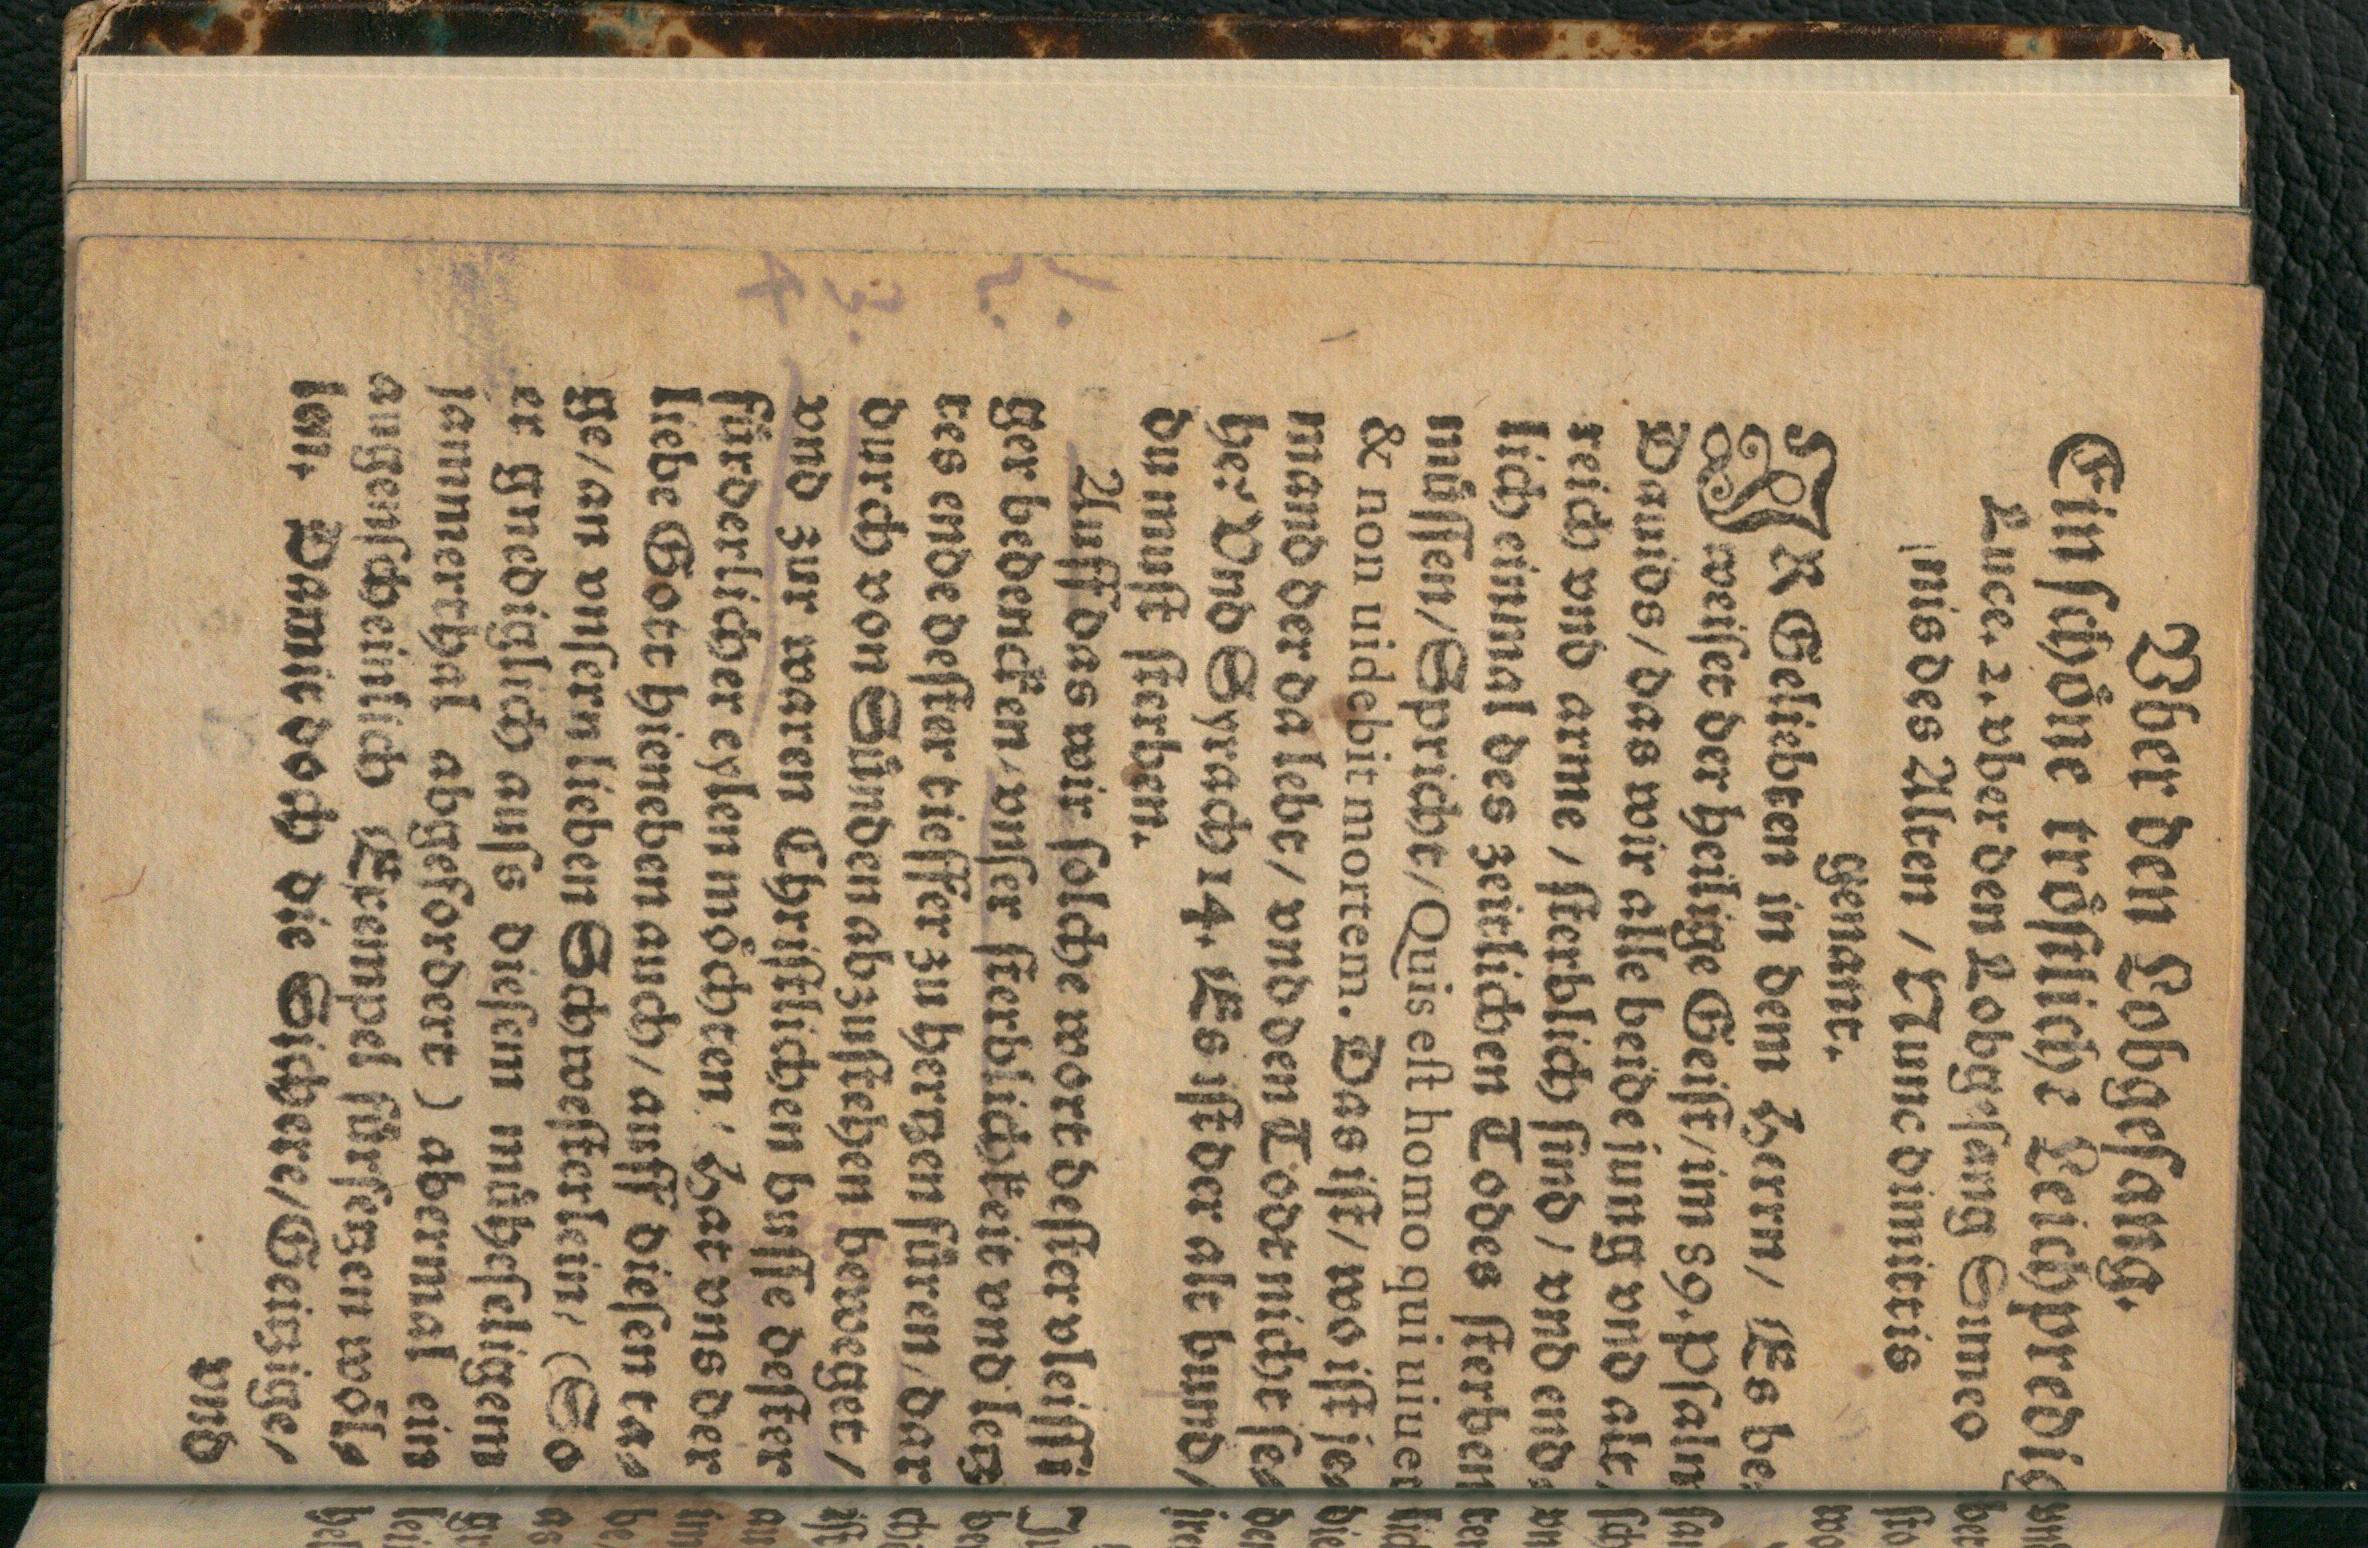 Vber den Lobgesang.
Ein schöne tröstliche Leichpredig
Luce. 2. vber den Lobgesang Simeo
nis des Alten / Nunc dimittis
genant.
IR Geliebten in dem Herrn / Es be,
weiset der heilige Geist / im 89. Psalm
Dauids / das wir alle beide jung vnd alt /
reich vnd arme / sterblich sind / vnd end,
lich einmal des zeitlichen Todes sterben
müssen / Spricht / Quis est homo qui uiuet
& non uidebit mortem. Das ist / wo ist je,
mand der da lebt / vnd den Todt nicht se,
he: Vnd Syrach 14. Es ist der alt bund /
du must sterben.
Auff das wir solche wort dester vleissi
ger bedencken / vnser sterblichkeit vnd letz
tes ende dester tieffer zu hertzen füren / dar
durch von Sünden abzustehen beweget /
vnd zur waren Christlichen busse dester
fürderlicher eylen möchten / Hat vns der
liebe Gott hieneben auch / auff diesen ta,
ge / an vnsern lieben Schwesterlein / (So
er gnediglich auss diesem mühseligem
jammerthal abgefordert) abermal ein
augenscheinlich Exempel fürstellen wöl,
len. Damit doch die Sichere / Geitzige /
vnd